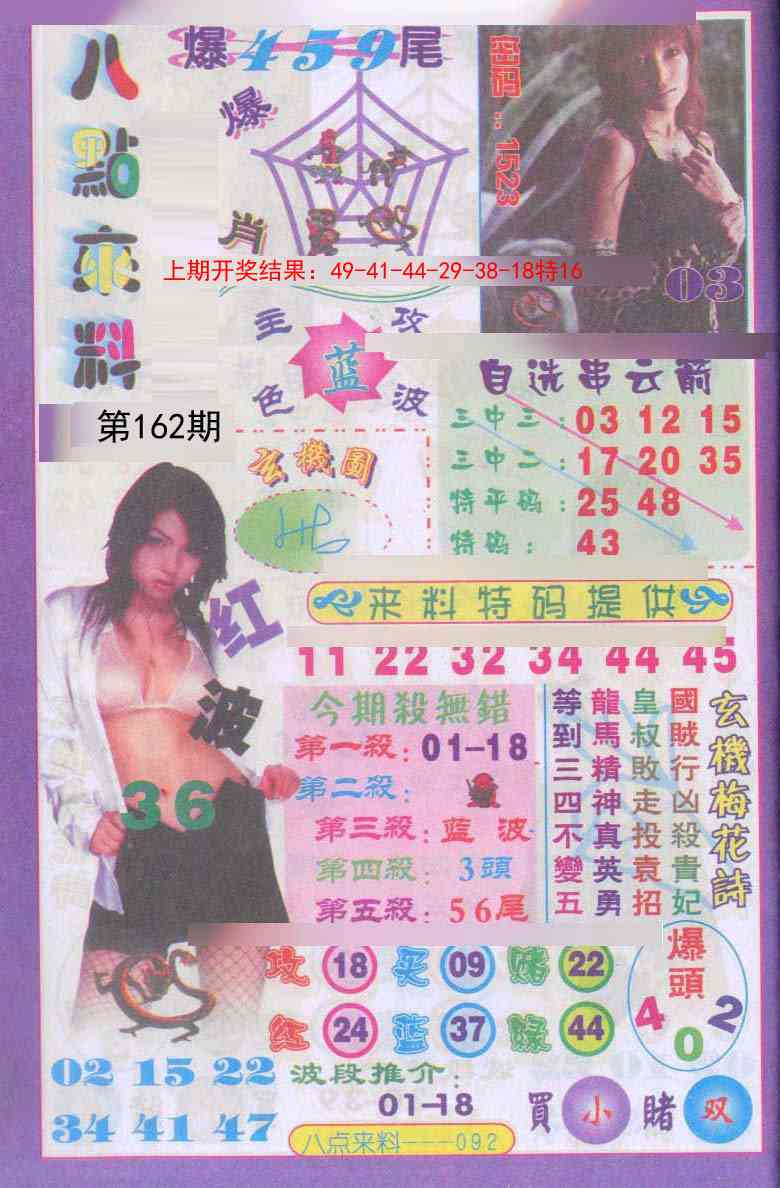 八點來料
爆459尾
爆肖
密碼：1523
03
上期开奖结果：49-41-44-29-38-18特16
主攻
蓝
色波
第162期
玄機圖
自选串云箭
三中三：03 12 15
三中二：17 20 35
特平码：25 48
特码：43
来料特码提供
11 22 32 34 44 45
红波
36
今期殺無錯
第一殺：01-18
第二殺：
第三殺：蓝波
第四殺：3頭
第五殺：56尾
玄機梅花詩
國賊行凶殺貴妃
皇叔敗走投袁招
龍馬精神真英勇
等到三四不變五
攻 18 买 09 赌 22
红 24 蓝 37 绿 44
爆頭
4 0 2
02 15 22
34 41 47
波段推介：
01-18
八点来料----092
買小賭双